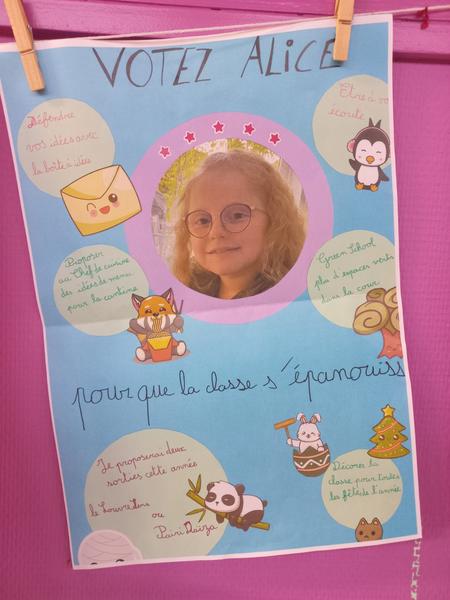 VOTEZ ALICE
Défendre
vos idées avec
la boîte à idées
Etre à vo
écoute
Proposer
au Chef de cuisine
des idées de menu
pour la cantine
Green School
plus d'espaces verts
dans la cour
pour que la classe s'épanouiss
Je proposerai deux
sorties cette année
le Louvre Lens
ou
Pairi Daiza
Décorer la
classe pour toutes
les fêtes de l'année